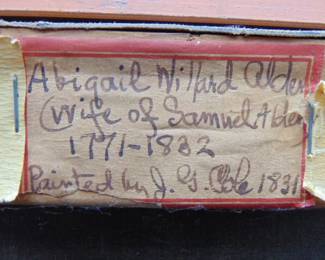 Abigail Willard Alden
(wife of Samuel Alden
1771-1832
Painted by J. G. Cole 1831